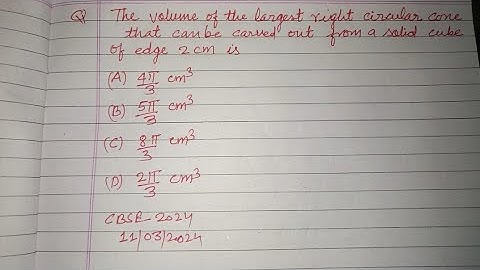 Q The volume of the largest right circular cone
that can be carved out from a solid cube
of edge 2 cm is
(A) 4π/3 cm³
(B) 5π/3 cm³
(C) 8π/3 cm³
(D) 2π/3 cm³
CBSE-2024
11/03/2024